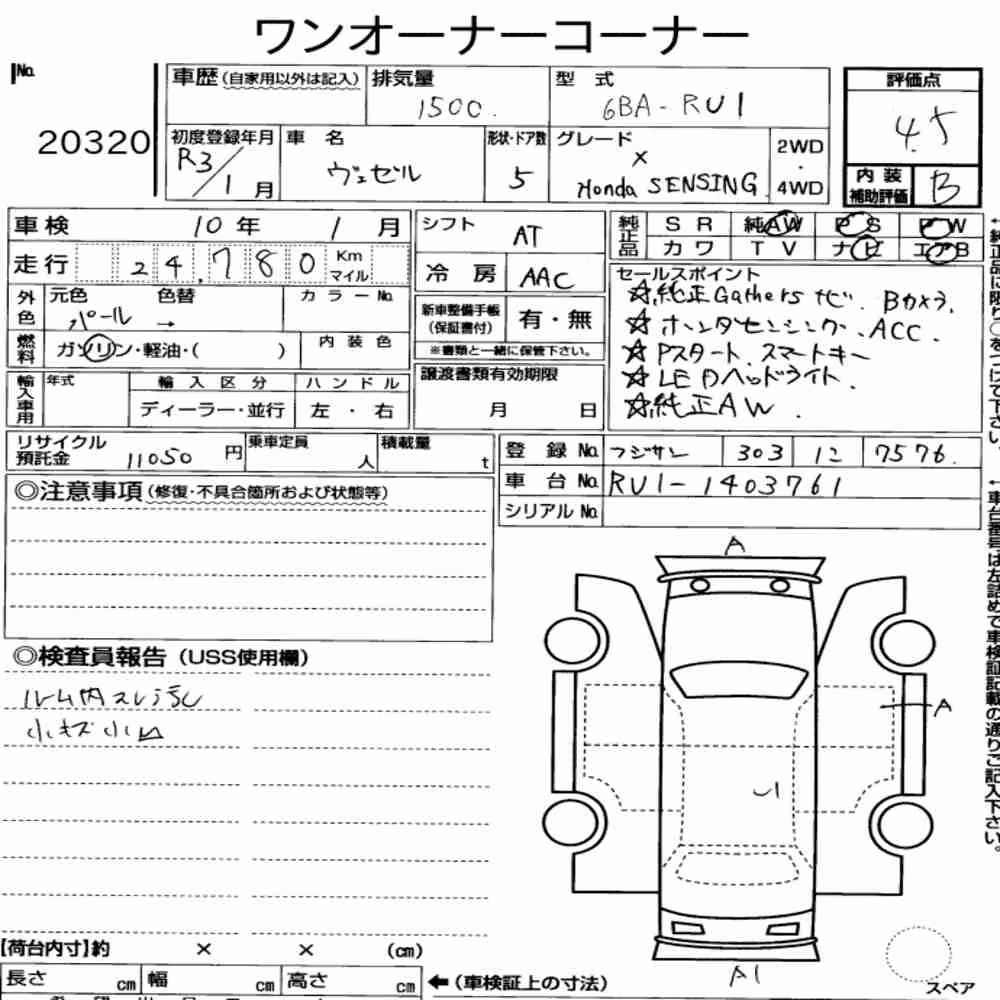 ワンオーナーコーナー
No.
20320
車歴(自家用以外は記入)
排気量
1500.
型 式
6BA-RU1
評価点
4.5
初度登録年月
R3/1月
車 名
ヴェゼル
形状・ドア数
5
グレード
X
Honda SENSING
2WD
・
4WD
内 装
補助評価
B
車検 10年 1月
シフト AT
純正品
SR 純AW PS PW
カワ TV ナビ エアB
走行 24,780 Km マイル
冷 房 AAC
セールスポイント
☆純正Gathersナビ Bカメラ.
☆ホンダセンシング.ACC.
☆Pスタート スマートキー
☆LEDヘッドライト.
☆純正AW.
外色
元色 色替 カラーNo.
パール →
新車整備手帳
(保証書付)
有・無
※書類と一緒に保管下さい。
燃料
ガソリン・軽油・( )
内 装 色
譲渡書類有効期限
月 日
輸入車用
年式
輸 入 区 分
ハ ン ド ル
ディーラー・並行
左 ・ 右
リサイクル
預託金
11050 円
乗車定員
人
積載量
t
登 録 No. フジサン 303 12 7576.
車 台 No. RU1-1403761
シリアル No.
◎注意事項(修復・不具合箇所および状態等)
◎検査員報告(USS使用欄)
ルーム内スレ汚レ
小キズ小凹
A
A
A1
【荷台内寸】約 × × (cm)
長さ cm 幅 cm 高さ cm
←(車検証上の寸法)
スペア
←純正品に限り○をつけて下さい。
←車台番号は左詰めで車検証記載の通りご記入下さい。